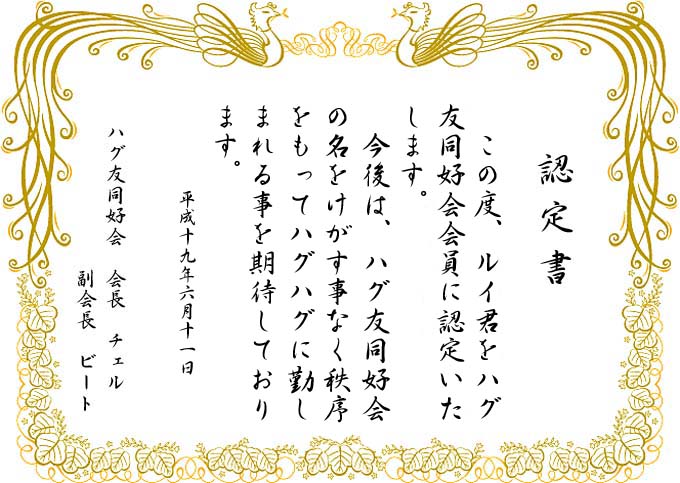 認定書
この度、ルイ君をハグ
友同好会会員に認定いた
します。
今後は、ハグ友同好会
の名をけがす事なく秩序
をもってハグハグに勤し
まれる事を期待しており
ます。
平成十九年六月十一日
ハグ友同好会　会長　チェル
副会長　ビート